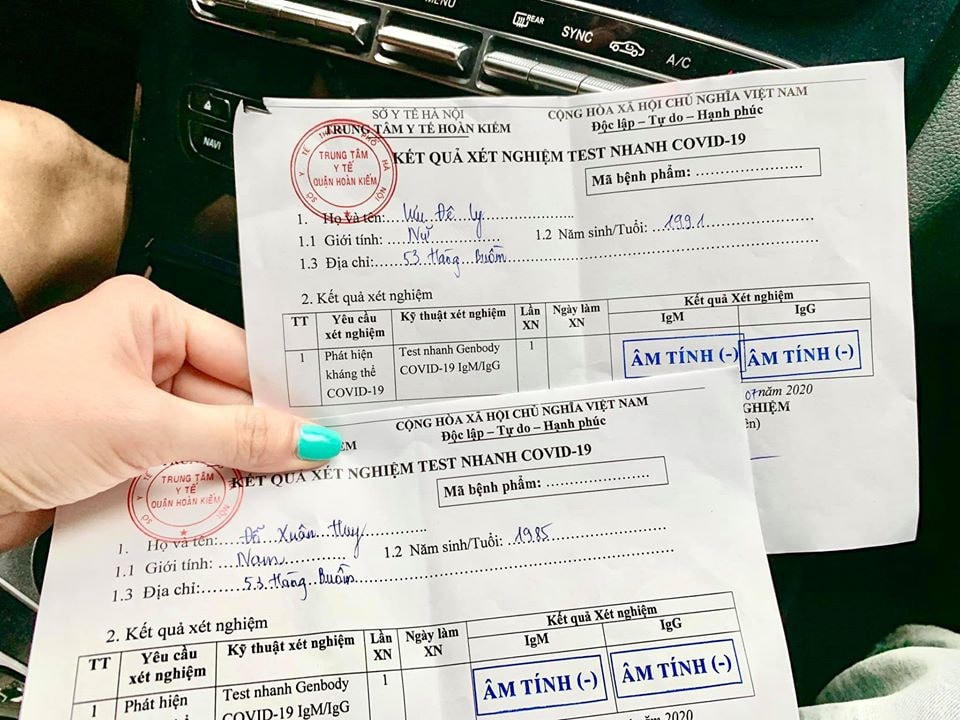 MENU
REAR
SYNC
A/C
NAVI
SỞ Y TẾ HÀ NỘI
TRUNG TÂM Y TẾ HOÀN KIẾM
CỘNG HÒA XÃ HỘI CHỦ NGHĨA VIỆT NAM
Độc lập – Tự do – Hạnh phúc
TRUNG TÂM
Y TẾ
QUẬN HOÀN KIẾM
KẾT QUẢ XÉT NGHIỆM TEST NHANH COVID-19
Mã bệnh phẩm: ......................
1. Họ và tên: Vũ Đê Ly
1.1 Giới tính: Nữ
1.2 Năm sinh/Tuổi: 1991
1.3 Địa chỉ: 53 Hàng Buồm
2. Kết quả xét nghiệm
TT Yêu cầu xét nghiệm Kỹ thuật xét nghiệm Lần XN Ngày làm XN Kết quả Xét nghiệm
IgM IgG
1 Phát hiện kháng thể COVID-19 Test nhanh Genbody COVID-19 IgM/IgG 1 ÂM TÍNH (-) ÂM TÍNH (-)
07 năm 2020
GHIỆM
ên)
CỘNG HÒA XÃ HỘI CHỦ NGHĨA VIỆT NAM
Độc lập – Tự do – Hạnh phúc
TRUNG TÂM
Y TẾ
QUẬN HOÀN KIẾM
KẾT QUẢ XÉT NGHIỆM TEST NHANH COVID-19
Mã bệnh phẩm: ......................
1. Họ và tên: Đỗ Xuân Huy
1.1 Giới tính: Nam
1.2 Năm sinh/Tuổi: 1985
1.3 Địa chỉ: 53 Hàng Buồm
2. Kết quả xét nghiệm
TT Yêu cầu xét nghiệm Kỹ thuật xét nghiệm Lần XN Ngày làm XN Kết quả Xét nghiệm
IgM IgG
1 Phát hiện Test nhanh Genbody COVID-19 IgM/IgG 1 ÂM TÍNH (-) ÂM TÍNH (-)
2020